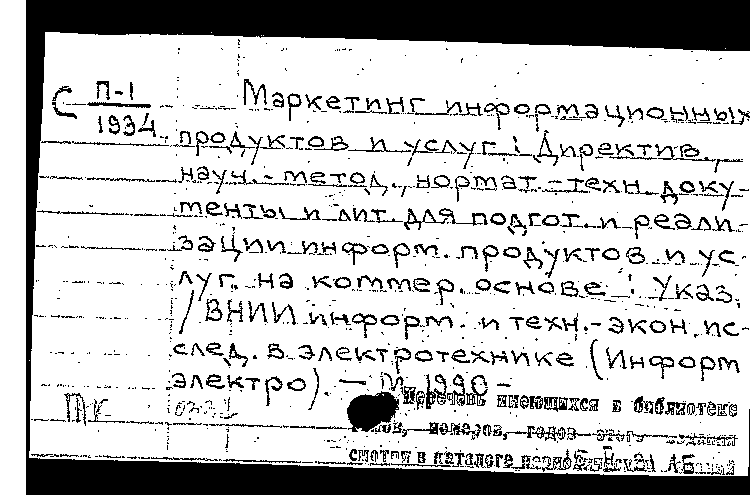 С П-1
1934
Маркетинг информационных
продуктов и услуг : Директив.,
науч.-метод., нормат.-техн. доку-
менты и лит. для подгот. и реали-
зации информ. продуктов и ус-
луг. на коммер. основе : Указ.
/ ВНИИ информ. и техн.-экон. ис-
след. в электротехнике (Информ
электро). — М 1990 -
Перечень имеющихся в библиотеке
номеров, годов этого издания
смотри в каталоге